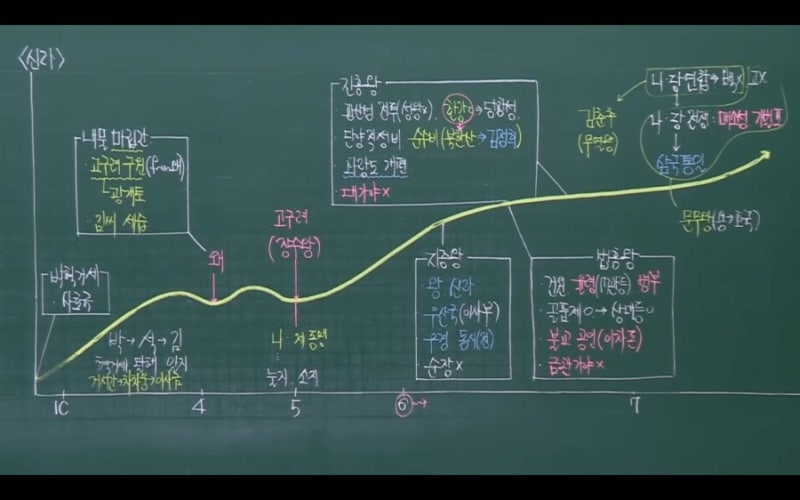 <신라>
박혁거세
· 사로국
내물 마립간
· 고구려 구원(
└ 광개토
· 김씨 세습
왜
고구려
(장수왕)
박→석→김
혁거세 탈해
나·제 동맹
눌지, 소지
진흥왕
한강 → 당항성
단양 적성비 순수비(북한산→김정희)
· 화랑도 개편
· 대가야×
지증왕
· 왕, 신라
· 우산국(이사부)
· 우경, 동시(전)
· 순장×
법흥왕
· 건원, 율령(17관등) 병부
· 골품제○→상대등○
· 불교 공인(이차돈)
· 금관가야×
김춘추
(무열왕)
나·당연합→백× 고×
나·당 전쟁: 매소성 기벌포
삼국통일
문무왕
1C 4 5 6→ 7